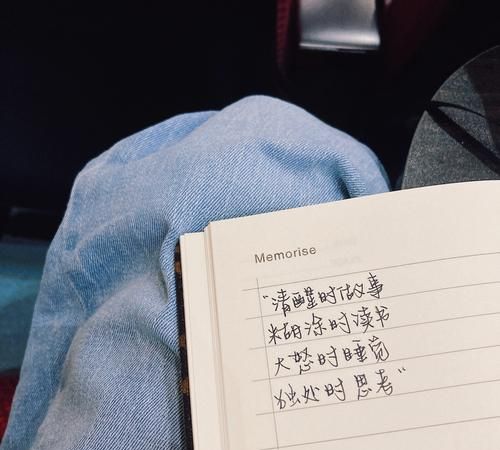 Memorise
"清醒时做事
糊涂时读书
大怒时睡觉
独处时思考"